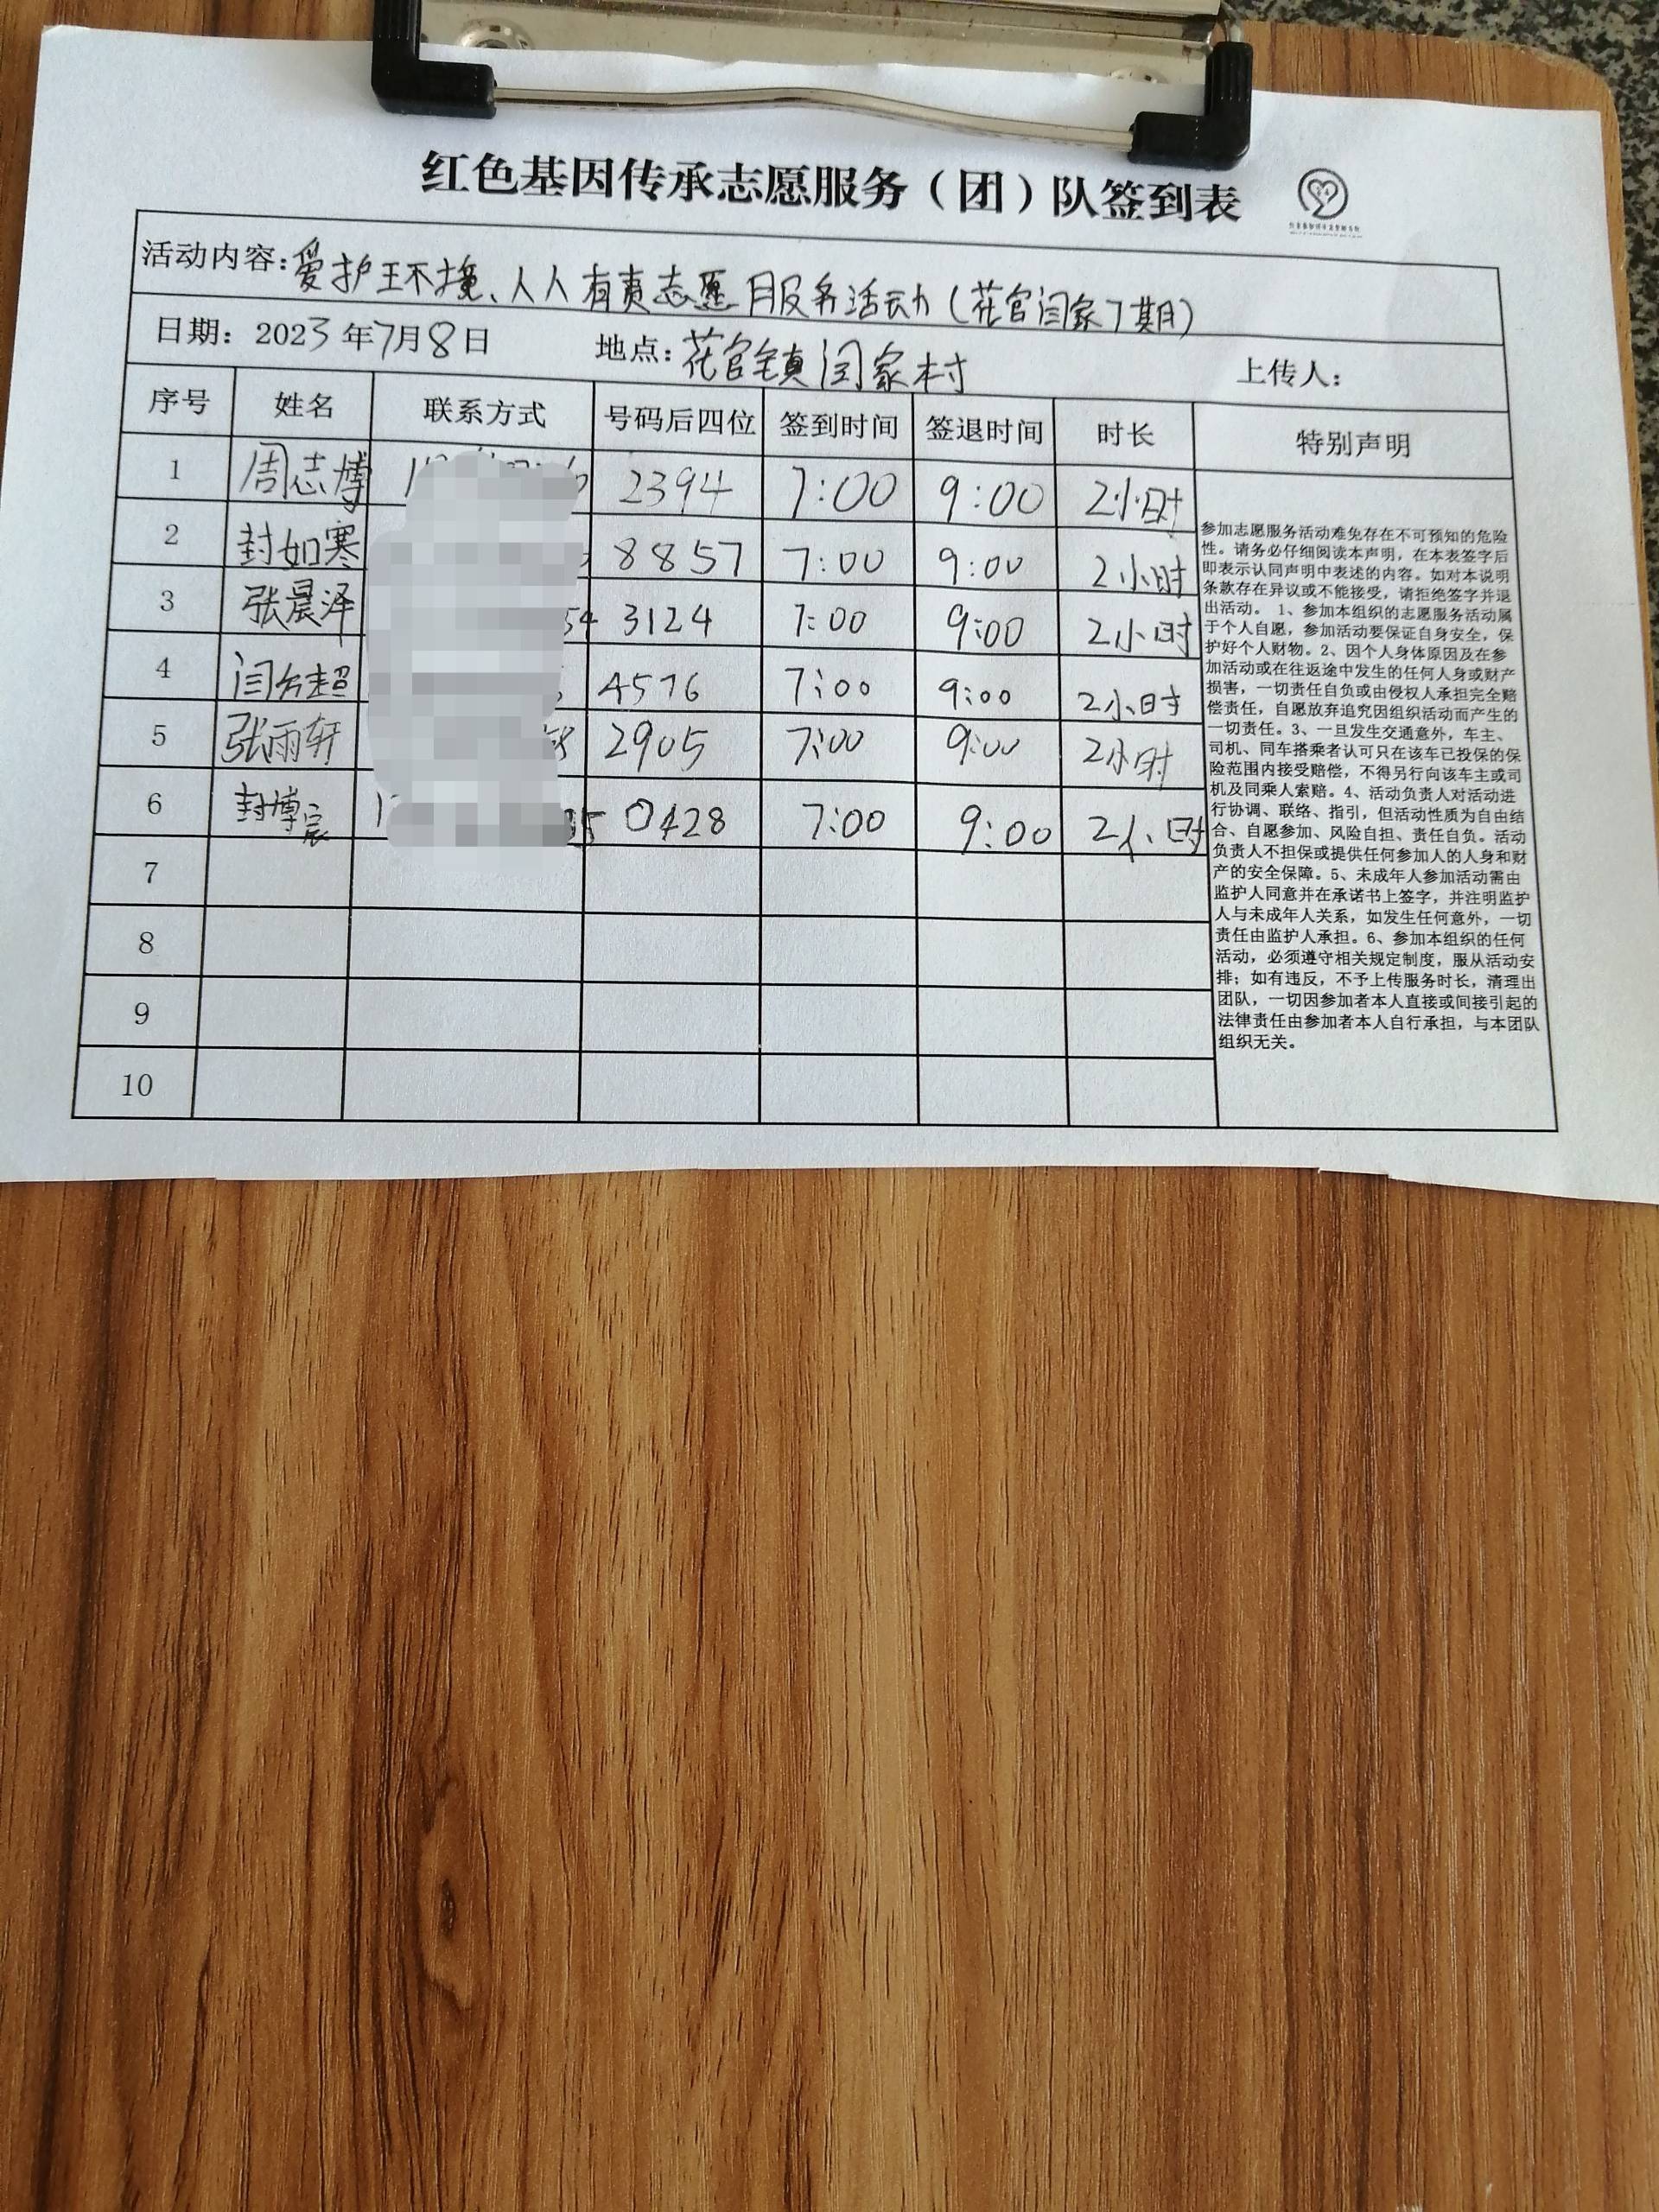 红色基因传承志愿服务（团）队签到表
活动内容：爱护环境、人人有责志愿服务活动（花官闫家7期）
日期：2023年7月8日 地点：花官镇闫家村 上传人：
序号 姓名 联系方式 号码后四位 签到时间 签退时间 时长 特别声明
1 周志博 2394 7:00 9:00 2小时
2 封如寒 8857 7:00 9:00 2小时
3 张晨泽 54 3124 7:00 9:00 2小时
4 闫 超 4576 7:00 9:00 2小时
5 张雨轩 58 2905 7:00 9:00 2小时
6 封博宸 1 35 0428 7:00 9:00 2小时
7
8
9
10
参加志愿服务活动难免存在不可预知的危险
性。请务必仔细阅读本声明，在本表签字后
即表示认同声明中表述的内容。如对本说明
条款存在异议或不能接受，请拒绝签字并退
出活动。1、参加本组织的志愿服务活动属
于个人自愿，参加活动要保证自身安全，保
护好个人财物。2、因个人身体原因及在参
加活动或在往返途中发生的任何人身或财产
损害，一切责任自负或由侵权人承担完全赔
偿责任，自愿放弃追究因组织活动而产生的
一切责任。3、一旦发生交通意外，车主、
司机、同车搭乘者认可只在该车已投保的保
险范围内接受赔偿，不得另行向该车主或司
机及同乘人索赔。4、活动负责人对活动进
行协调、联络、指引，但活动性质为自由结
合、自愿参加、风险自担、责任自负。活动
负责人不担保或提供任何参加人的人身和财
产的安全保障。5、未成年人参加活动需由
监护人同意并在承诺书上签字，并注明监护
人与未成年人关系，如发生任何意外，一切
责任由监护人承担。6、参加本组织的任何
活动，必须遵守相关规定制度，服从活动安
排；如有违反，不予上传服务时长，清理出
团队，一切因参加者本人直接或间接引起的
法律责任由参加者本人自行承担，与本团队
组织无关。